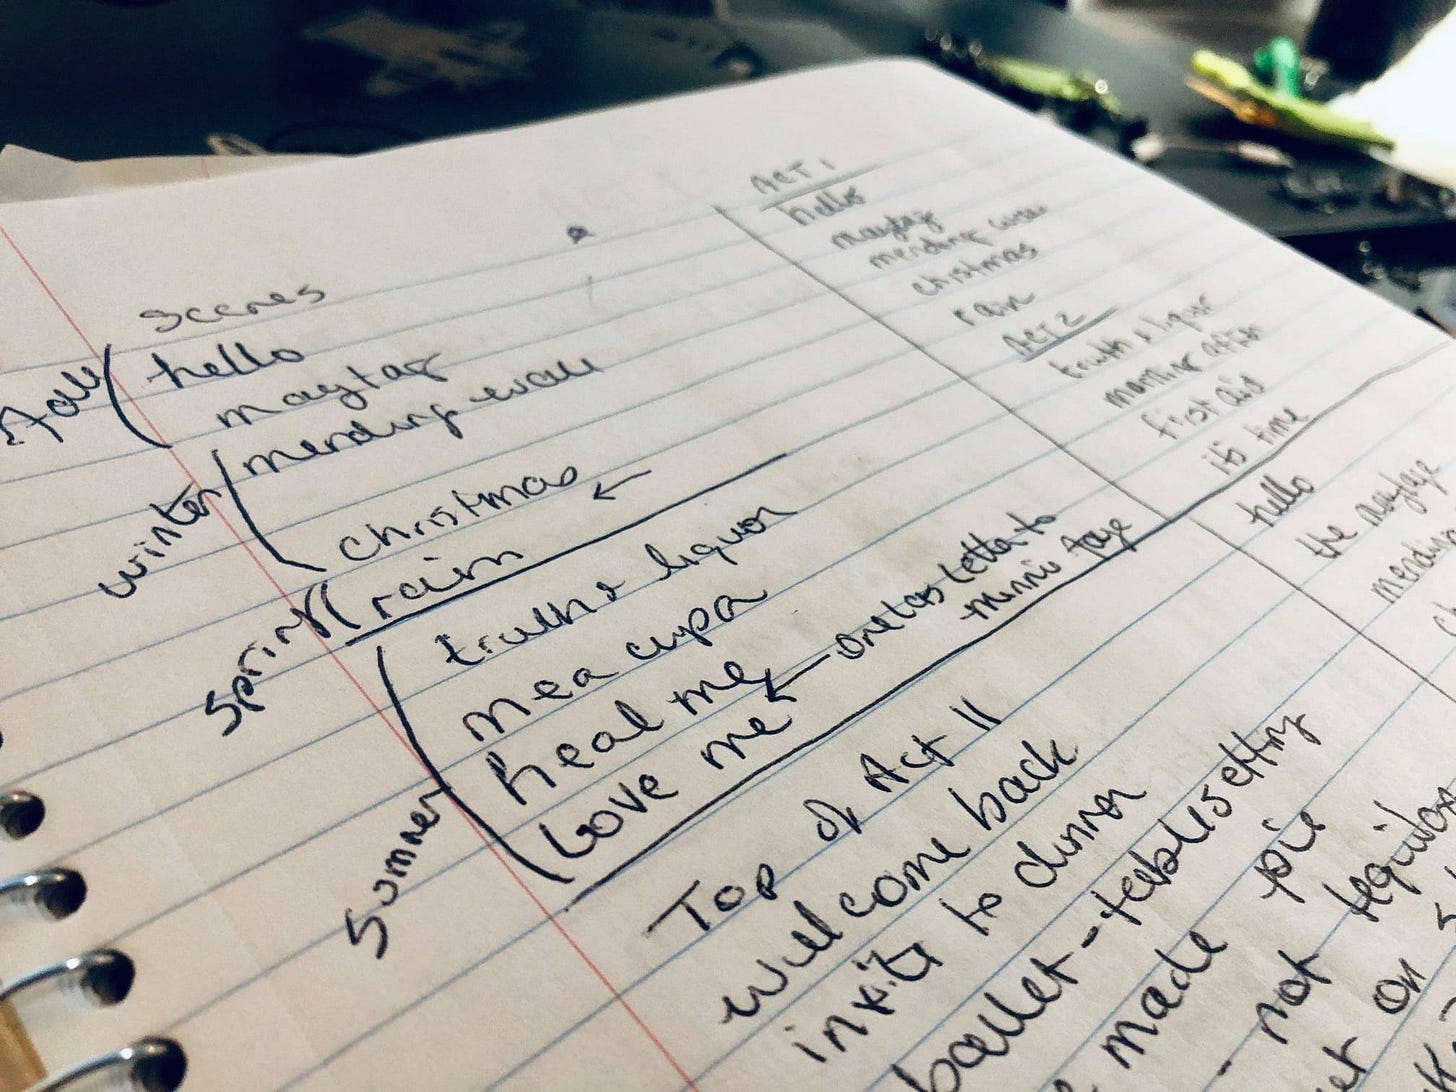 scenes
fall
hello
maytag
winter
mending wall
christmas
spring
rain
summer
truth + liquor
mea cupa
heal me
love me
one last letter to
minnie faye
ACT 1
hello
maytag
mending wall
christmas
rain
ACT 2
truth + liquor
morning after
first aid
it's time
hello
the maytage
mending
Top of Act II
will come back
invite to dinner
ballet - table setting
made pie
- not
on